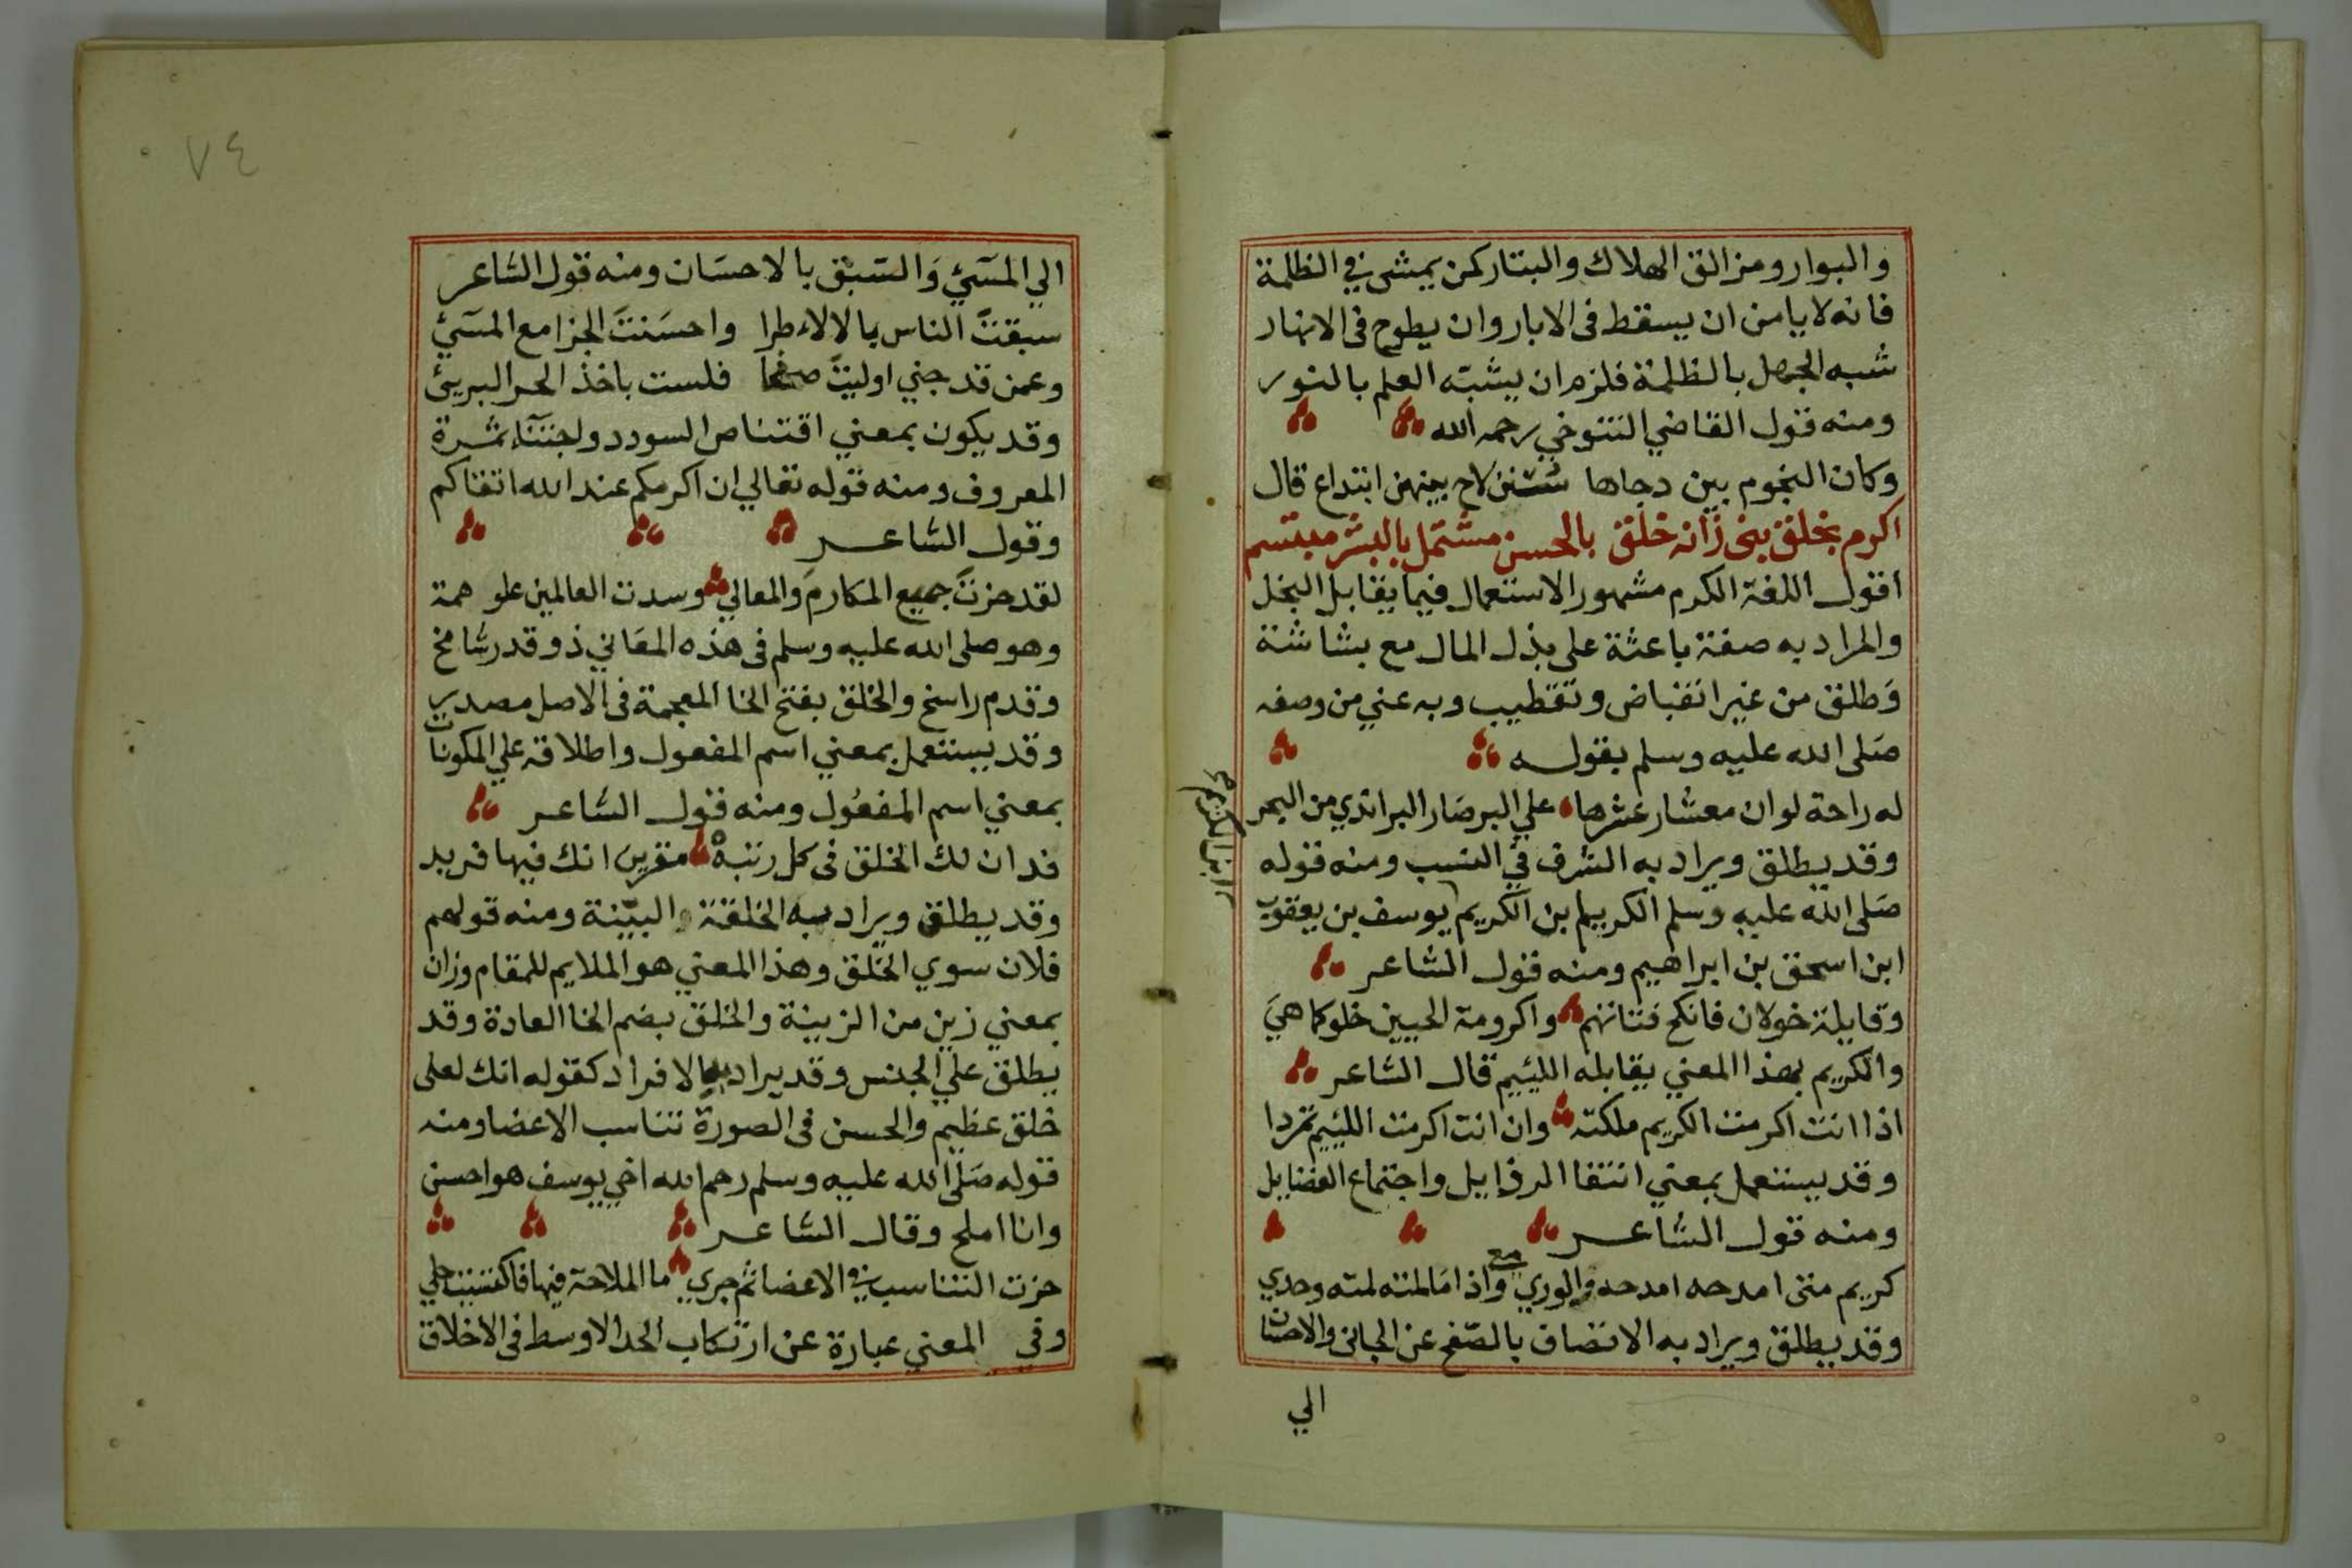 والبوار ومزالق الهلاك والبتار كمن يمشى في الظلمة
فانه لا يامن ان يسقط فى الابار وان يطوح فى الانهار
شبه الجهل بالظلمة فلزم ان يشبه العلم بالنور
ومنه قول القاضي التنوخي رحمه الله
وكان النجوم بين دجاها سنن لاح بينهن ابتداع قال
اكرم بخلق نبى زانه خلق بالحسن مشتمل بالبشر مبتسم
اقول اللغة الكرم مشهور الاستعمال فيما يقابل البخل
والمراد به صفة باعثة على بذل المال مع بشاشة
وطلق من غير انقباض وتقطيب وبه عني من وصفه
صلى الله عليه وسلم بقوله
له راحة لو ان معشار عشرها علي البر صار البر اندي من البحر
وقد يطلق ويراد به الشرف في النسب ومنه قوله
صلى الله عليه وسلم الكريم بن الكريم يوسف بن يعقوب
ابن الكريم
ابن اسحق بن ابراهيم ومنه قول الشاعر
وقايلة خولان فانكح فتاتهم واكرومة الحيين خلو كما هي
والكريم بهذا المعني يقابله اللييم قال الشاعر
اذا انت اكرمت الكريم ملكته وان انت اكرمت اللييم تمردا
وقد يستعمل بمعني انتفا الرذايل واجتماع الفضايل
ومنه قول الشاعر
كريم متى امدحه امدحه والوري معي واذا ما لمته لمته وحدي
وقد يطلق ويراد به الاتصاف بالصفح عن الجانى والاحسان
الي
٧٤
الي المسيء والسبق بالاحسان ومنه قول الشاعر
سبقت الناس بالالاء طرا واحسنت الجزا مع المسيء
وعمن قد جني اوليت صفحا فلست باخذ الحر البريئ
وقد يكون بمعني اقتناص السودد واجتناء ثمرة
المعروف ومنه قوله تعالي ان اكرمكم عند الله اتقاكم
وقول الشاعر
لقد حزت جميع المكارم والمعالي وسدت العالمين علو همة
وهو صلى الله عليه وسلم فى هذه المعاني ذو قدر شامخ
وقدم راسخ والخلق بفتح الخا المعجمة فى الاصل مصدر
وقد يستعمل بمعني اسم المفعول واطلاقه علي المكونات
بمعني اسم المفعول ومنه قول الشاعر
فدان لك الخلق فى كل رتبة مقرين انك فيها فريد
وقد يطلق ويراد به الخلقة والبينة ومنه قولهم
فلان سوي الخلق وهذا المعني هو الملايم للمقام وزان
بمعني زين من الزينة والخلق بضم الخا العادة وقد
يطلق علي الجنس وقد يراد بها الافراد كقوله انك لعلى
خلق عظيم والحسن فى الصورة تناسب الاعضا ومنه
قوله صلى الله عليه وسلم رحم الله اخي يوسف هو احسن
وانا املح وقال الشاعر
حزت التناسب في الاعضا ثم جري ما الملاحة فيها فاكتست حلي
وفي المعني عبارة عن ارتكاب الحد الاوسط فى الاخلاق